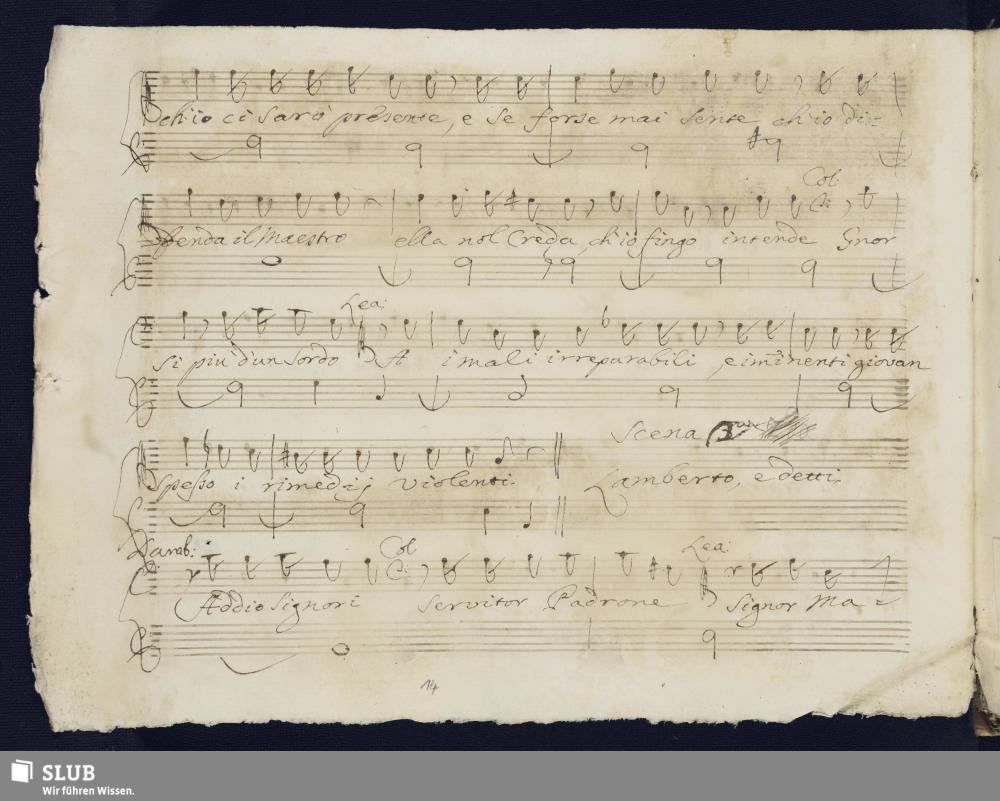 ch'io ci sarò presente, e se forse mai sente ch'io di:
Col:
fenda il Maestro ella nol Creda ch'io fingo intende Gnor
Lea:
si più d'un sordo A i mali irreparabili, e iminenti giovan
Scena 3
spesso i rimedij violenti. Lamberto, e detti.
Col Lea:
Addio Signori servitor Padrone Signor Ma:
14
SLUB
Wir führen Wissen.